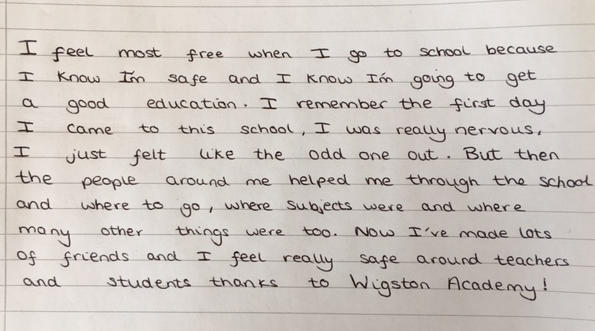 I feel most free when I go to school because
I know I'm safe and I know I'm going to get
a good education. I remember the first day
I came to this school, I was really nervous,
I just felt like the odd one out. But then
the people around me helped me through the school
and where to go, where subjects were and where
many other things were too. Now I've made lots
of friends and I feel really safe around teachers
and students thanks to Wigston Academy!